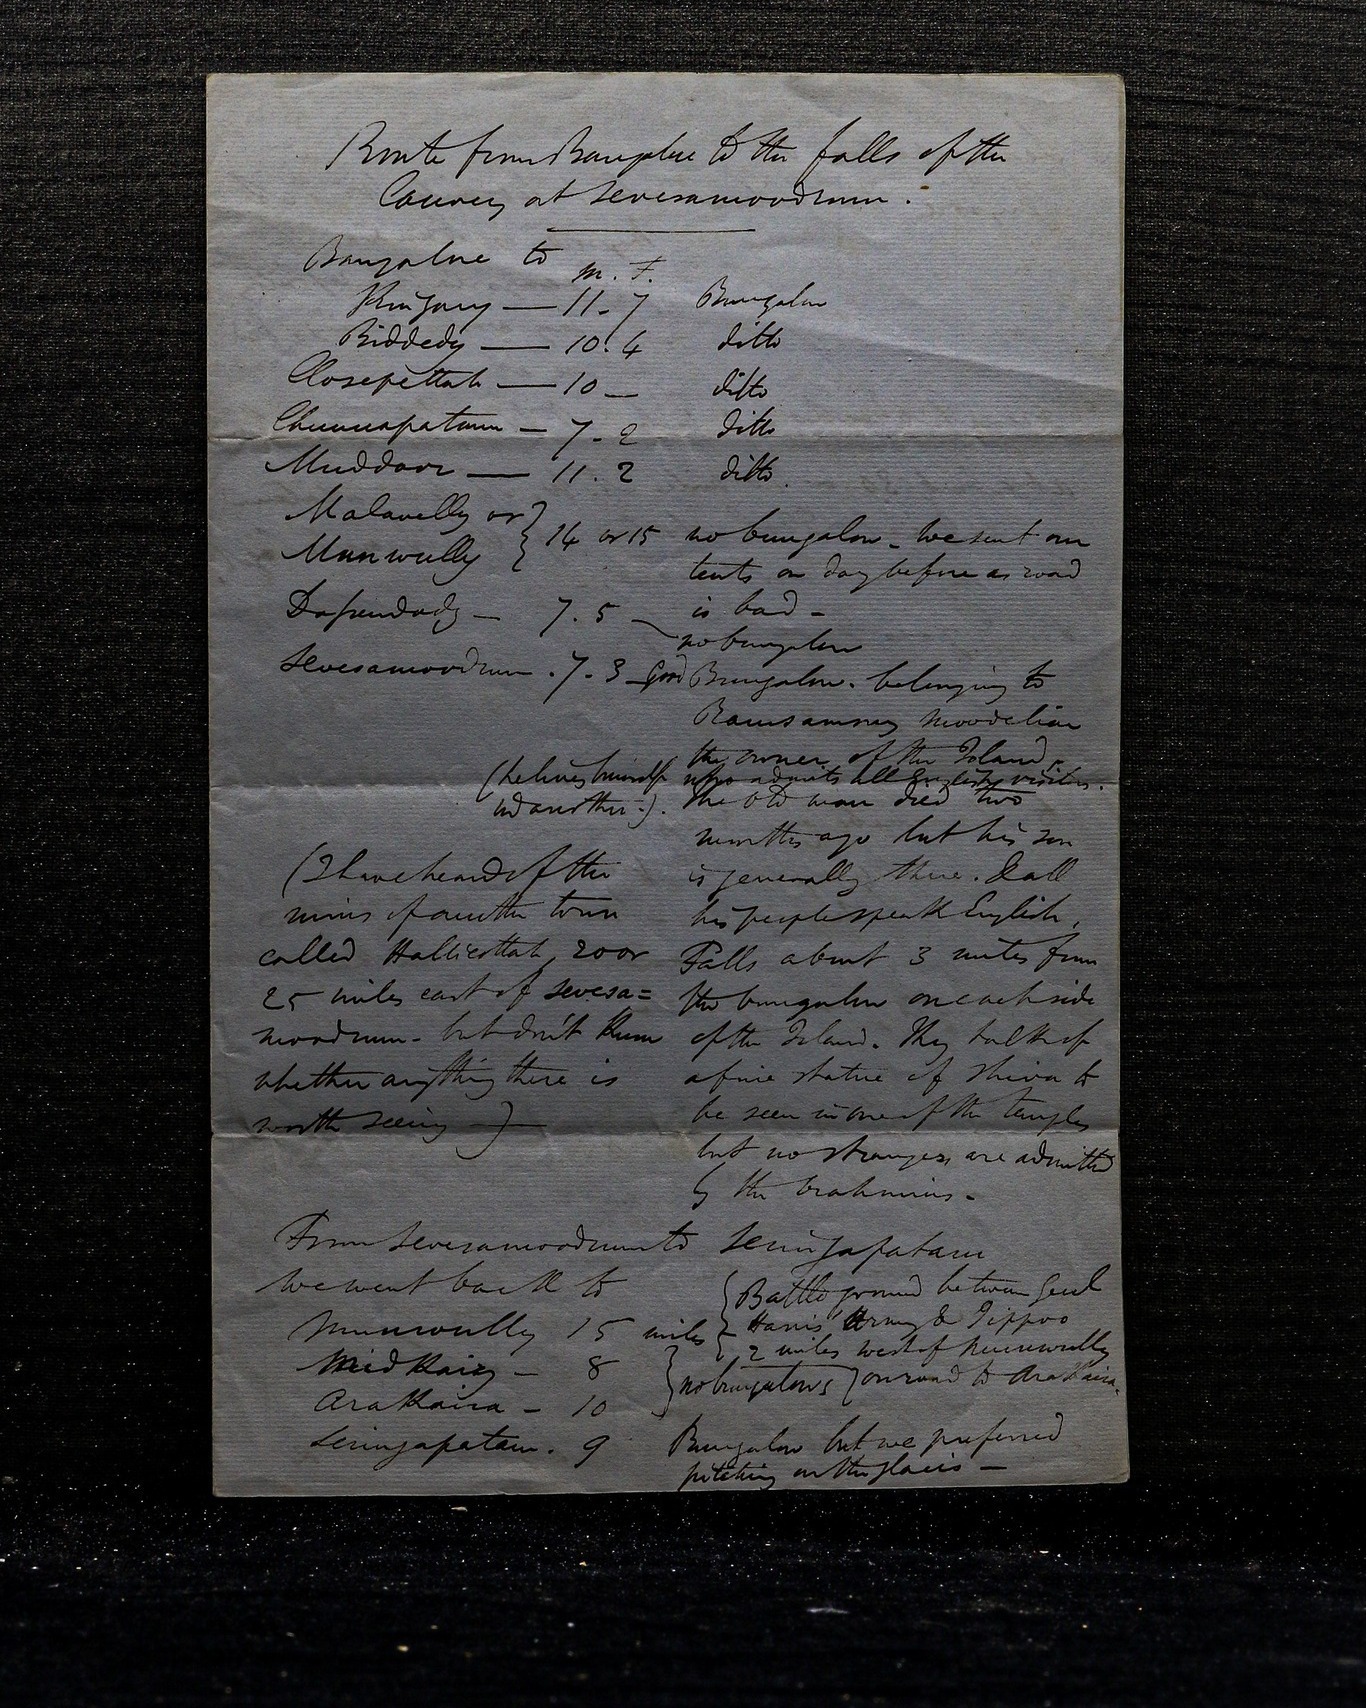 Route from Bangalore to the falls of the
Cauvery at Sevesamoodrum.
Bangalore to
m. F.
Kingary — 11. 7 Bungalow
Biddedy — 10. 4 ditto
Closepettah — 10 — ditto
Chunnapatam — 7. 2 ditto
Muddoor — 11. 2 ditto
Malavelly or
Munwully } 14 or 15 no bungalow - we sent our
tents on day before as road
is bad -
7. 5 — no bungalow
Sevesamoodrum. 7. 3 - Good Bungalow. belonging to
Ramsammy Moodeliar
the owner of the Island,
who admits all English visitors.
(he lives himself
in another -).
The old man died two
months ago but his son
is generally there. & all
his people speak English.
Falls about 3 miles from
the bungalow on each side
of the Island. They talk of
a fine statue of Shiva to
be seen in one of the temples
but no strangers are admitted
by the brahmins -
(I have heard of the
ruins of another town
called Hallicottah, 20 or
25 miles east of Sevesa=
moodrum - but don't know
whether anything there is
worth seeing —)
From Sevesamoodrum to Seringapatam
we went back to
Munwully 15 miles { Battle ground between Genl
Harris' Army & Tippoo
2 miles west of Munwully
on road to Arakaira.
8 } no bungalows
Arakaira - 10
Seringapatam. 9 Bungalow but we preferred
pitching on the glacis -